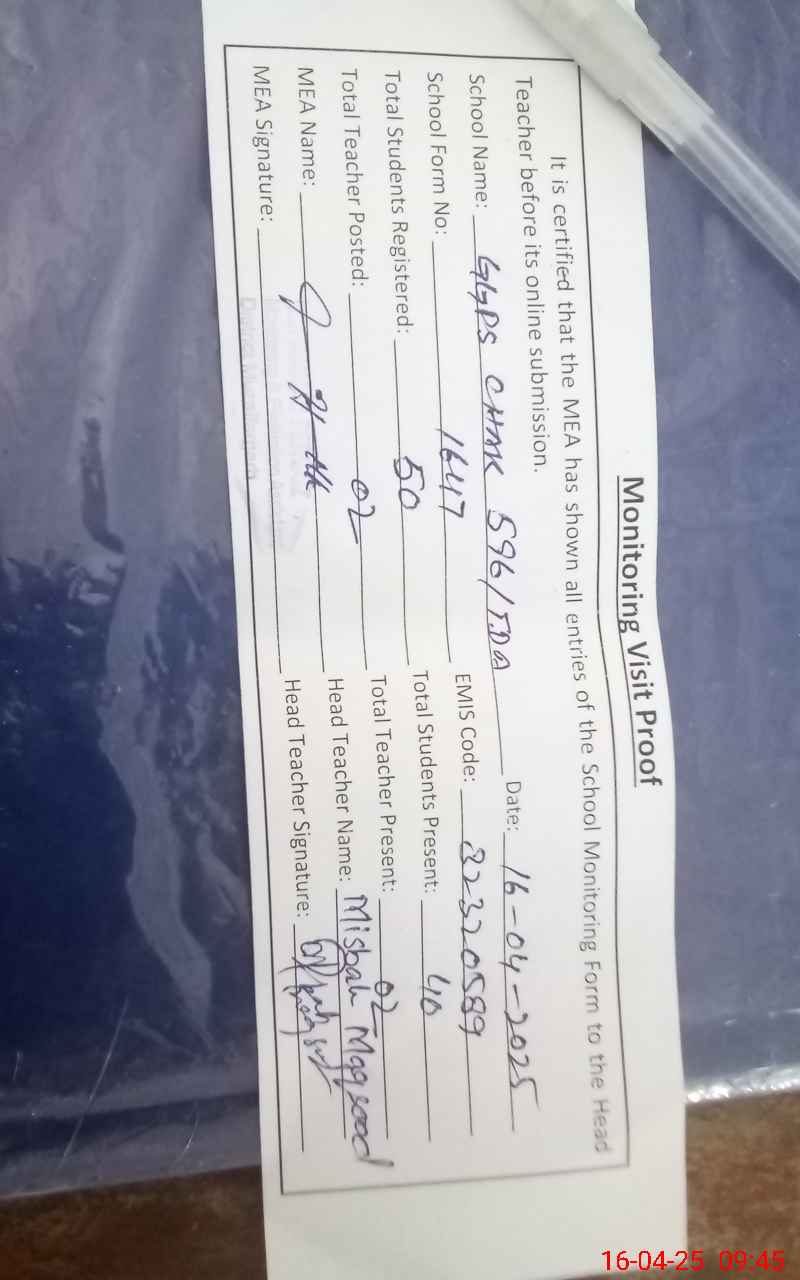 Monitoring Visit Proof
It is certified that the MEA has shown all entries of the School Monitoring Form to the Head
Teacher before its online submission.
School Name: GGPS CHAK 596/TDA Date: 16-04-2025
School Form No: 1647 EMIS Code: 32320589
Total Students Registered: 50 Total Students Present: 40
Total Teacher Posted: 02 Total Teacher Present: 02
MEA Name: Head Teacher Name: Misbah Maqsood
MEA Signature: Head Teacher Signature:
16-04-25 09:45